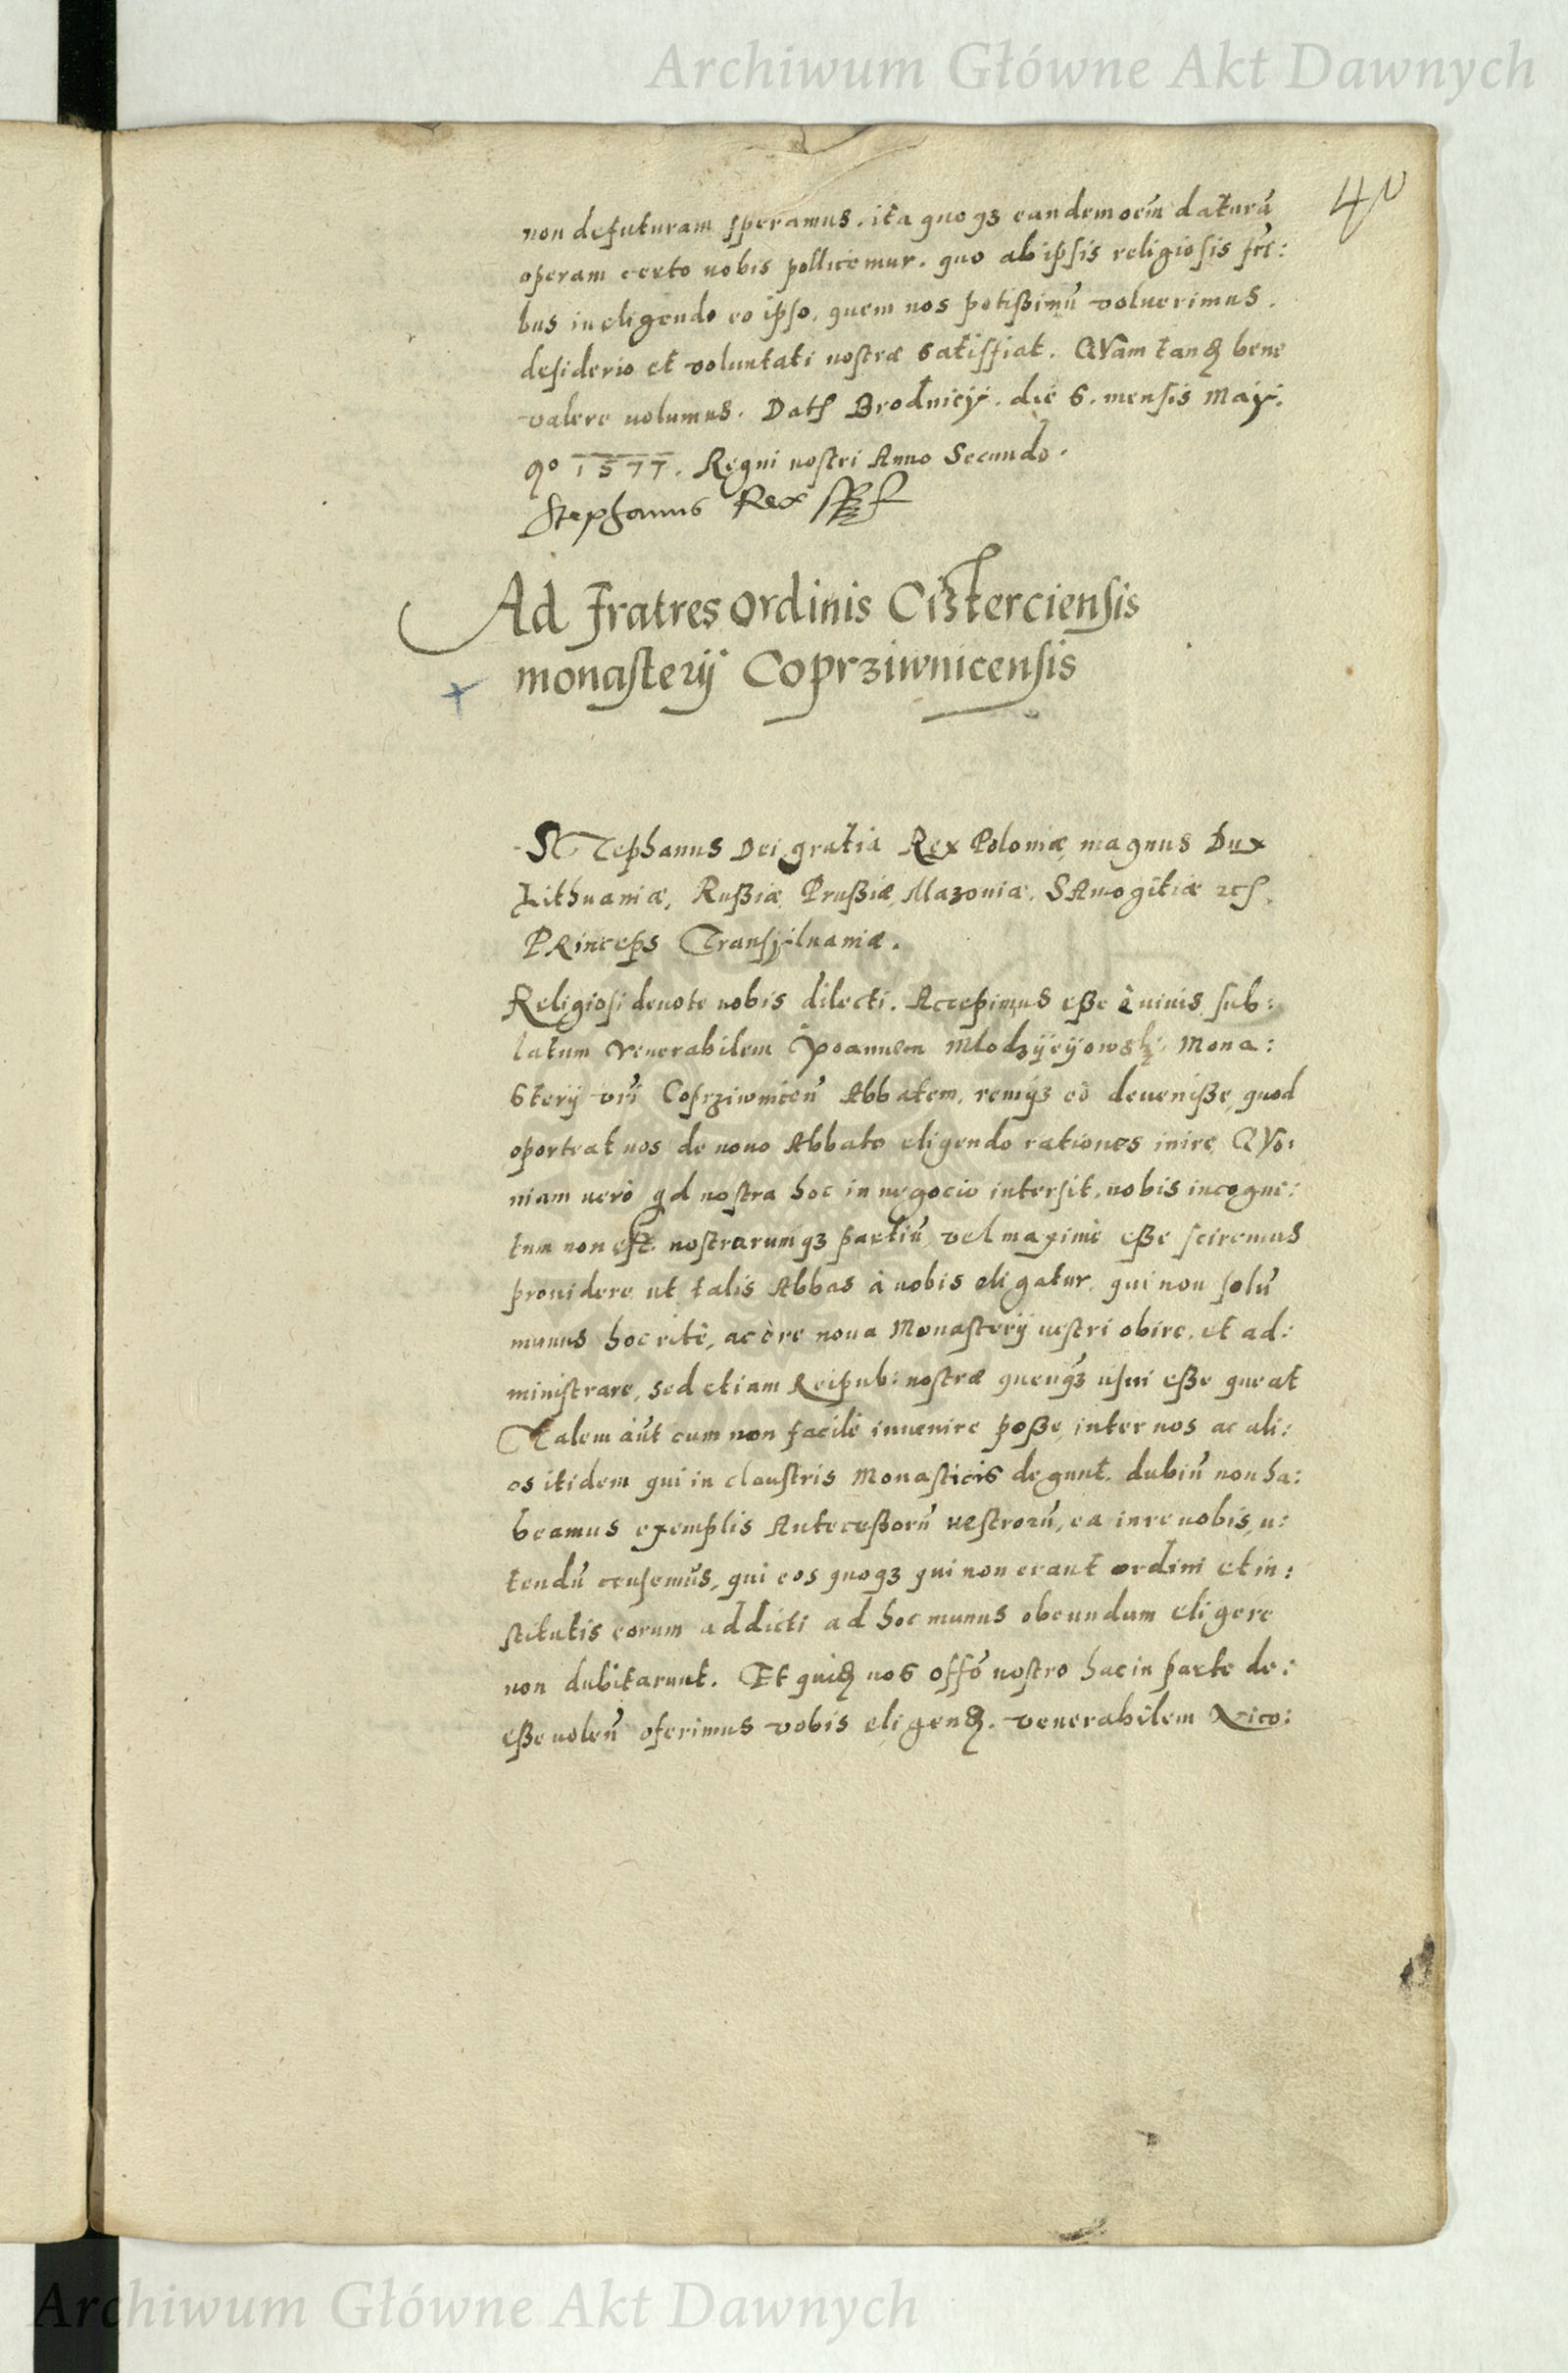 Archiwum Główne Akt Dawnych
40
non defuturam speramus. ita quoqȝ eandem oem̃ daturã
operam certo nobis pollicemur. quo ab ipsis religiosis frĩ:
bus in eligendo eo ipso, quem nos potißimũ voluerimus.
desiderio et voluntati nostræ satisfiat. QVam tanꝗ bene
valere volumus. Datˢ Brodnicÿ. die 6. mensis Maÿ.
1577. Regni nostri Anno Secundo.
Stephanus Rex
Ad fratres ordinis Cisterciensis
monasterij Coprziwnicensis
STephanus Dei gratia Rex Poloniæ, magnus Dux
Lithuaniæ, Rußiæ, Prußiæ, Mazoniæ. SAmogitiæ
PRinceps Transÿluaniæ.
Religiosi deuote nobis dilecti. Accepimus eße è viuis sub:
latum Venerabilem Joannem Mlodzÿeÿowskj. Mona:
sterij vrĩ Coprziwnicen̄ Abbatem, remqȝ eò deuenißse, quod
oporteat vos de nouo Abbate eligendo rationes inire, QVo:
niam verò qd nostra hoc in negocio intersit, nobis incogni:
tum non est. nostrarumqȝ partiũ, vel maximè eße sciremus
prouidere, ut talis Abbas à vobis eligatur. qui non solũ
munus hoc ritè, ac è re noua Monasterij vestri obire, et ad:
ministrare, sed etiam Reipub: nostræ usui eße queat
Talem aũt cum non facilè inuenire poße, inter vos ac ali:
os itidem qui in claustris Monasticis degunt. dubiũ non ha:
beamus exemplis Anteceßorũ vestrorũ, ea in re vobis, u:
tendũ censemus, qui eos quoqȝ qui non erant ordini et in:
stitutis eorum addicti ad hoc munus obeundum eligere
non dubitarunt. Et quiꝗ nos offõ nostro hac in parte de:
eße volen̄ oferimus vobis eligenꝗ. venerabilem Nico:
Archiwum Główne Akt Dawnych